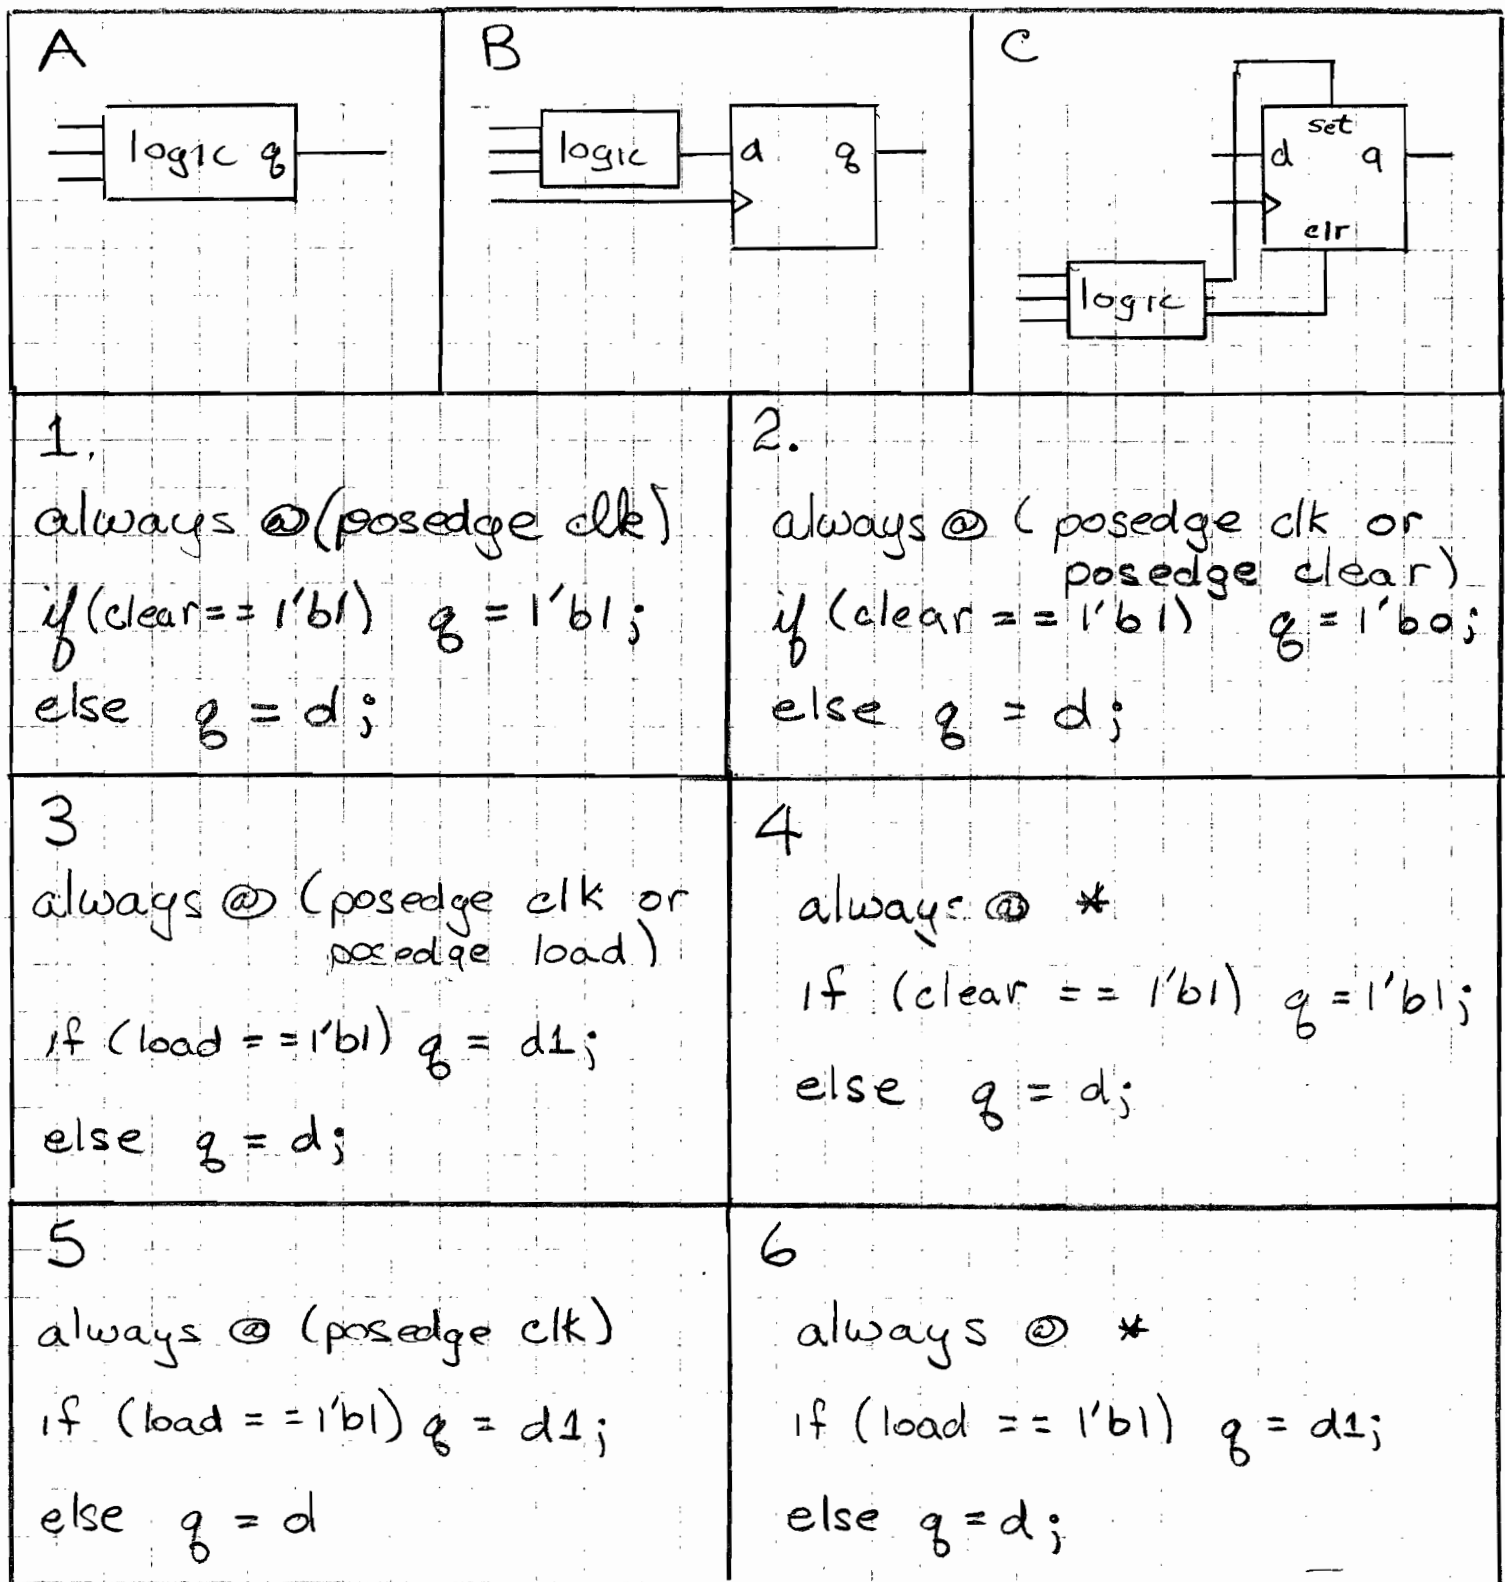 A
logic q
B
logic d q
C
set
d q
clr
logic
1.
always @(posedge clk)
if(clear== 1'b1) q = 1'b1;
else q = d;
2.
always @ (posedge clk or
posedge clear)
if (clear == 1'b1) q = 1'b0;
else q = d;
3
always @ (posedge clk or
posedge load)
if (load == 1'b1) q = d1;
else q = d;
4
always @ *
if (clear == 1'b1) q = 1'b1;
else q = d;
5
always @ (posedge clk)
if (load == 1'b1) q = d1;
else q = d
6
always @ *
if (load == 1'b1) q = d1;
else q = d;